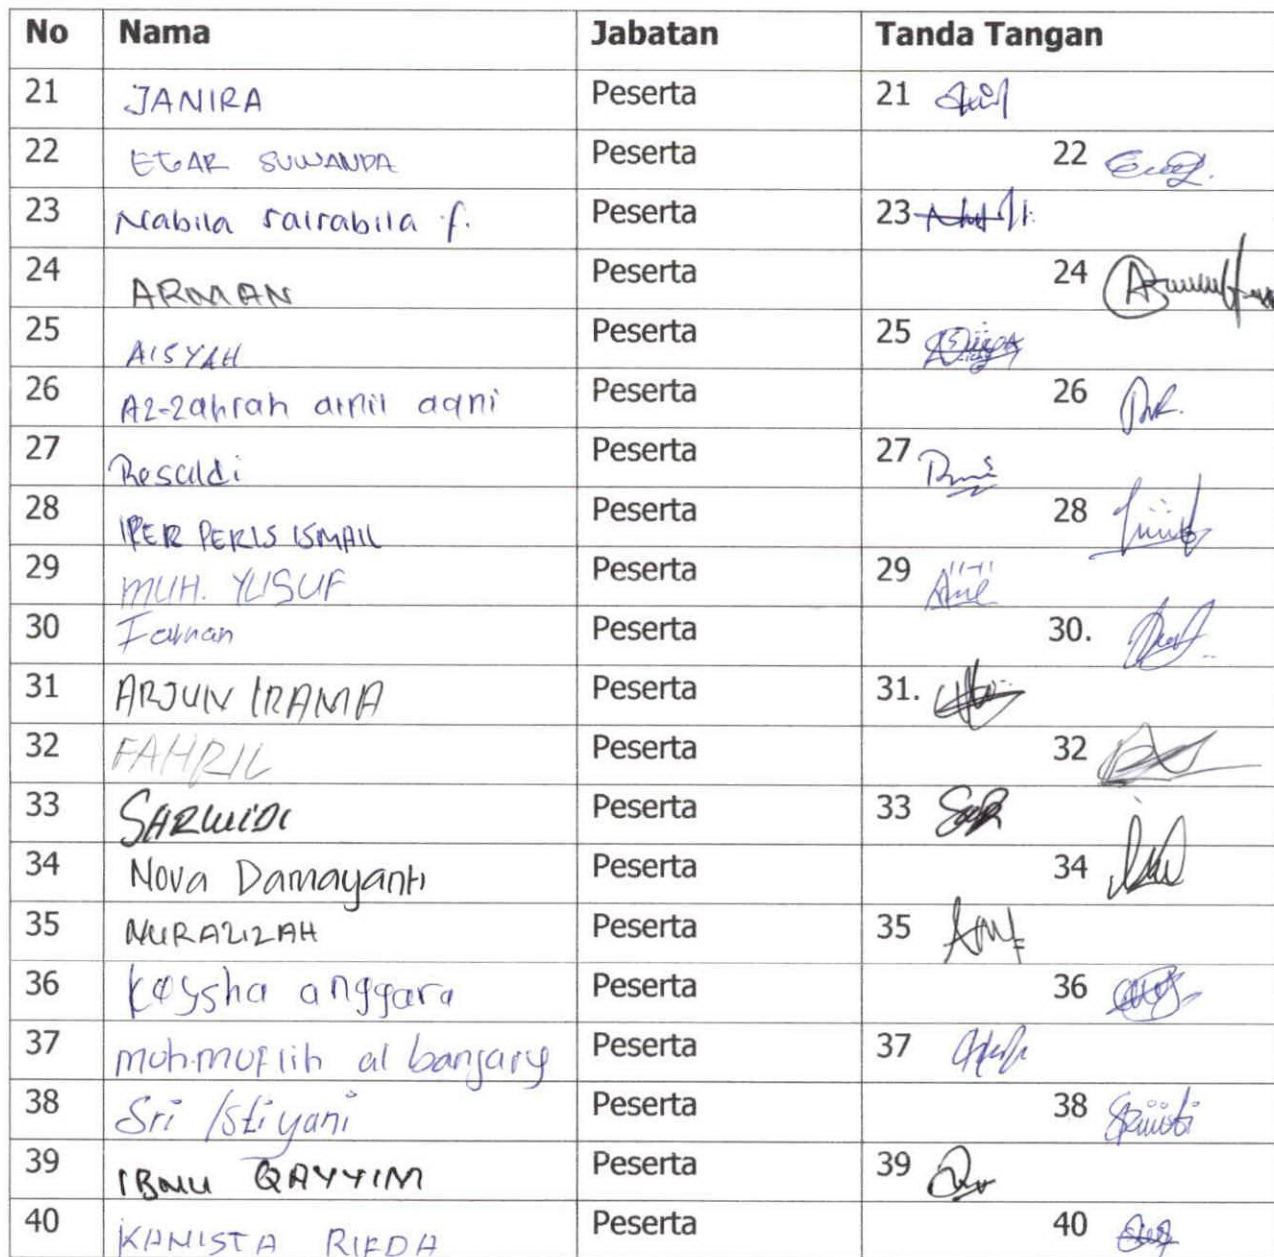 No Nama Jabatan Tanda Tangan
21 JANIRA Peserta 21
22 EGAR SUWANDA Peserta 22
23 Nabila sairabila f. Peserta 23
24 ARMAN Peserta 24
25 AISYAH Peserta 25
26 Az-zahrah ainil aqni Peserta 26
27 Resaldi Peserta 27
28 IPER PERIS ISMAIL Peserta 28
29 MUH. YUSUF Peserta 29
30 Peserta 30.
31 ARJUN IRAMA Peserta 31.
32 FAHRIL Peserta 32
33 SARWIDI Peserta 33
34 Nova Damayanti Peserta 34
35 NURAZIZAH Peserta 35
36 Kaysha anggara Peserta 36
37 moh.muflih al banjary Peserta 37
38 Sri Istiyani Peserta 38
39 IBNU QAYYIM Peserta 39
40 KANISTA RIFDA Peserta 40